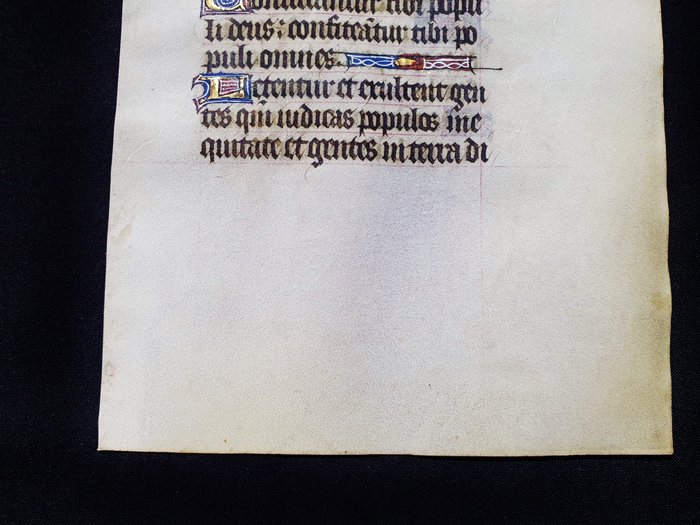 Confitebuntur tibi popu
li deus: confiteātur tibi po
puli omnes.
Letentur et exultent gen
tes qm̄ iudicas populos ī ne
quitate et gentes in terra di